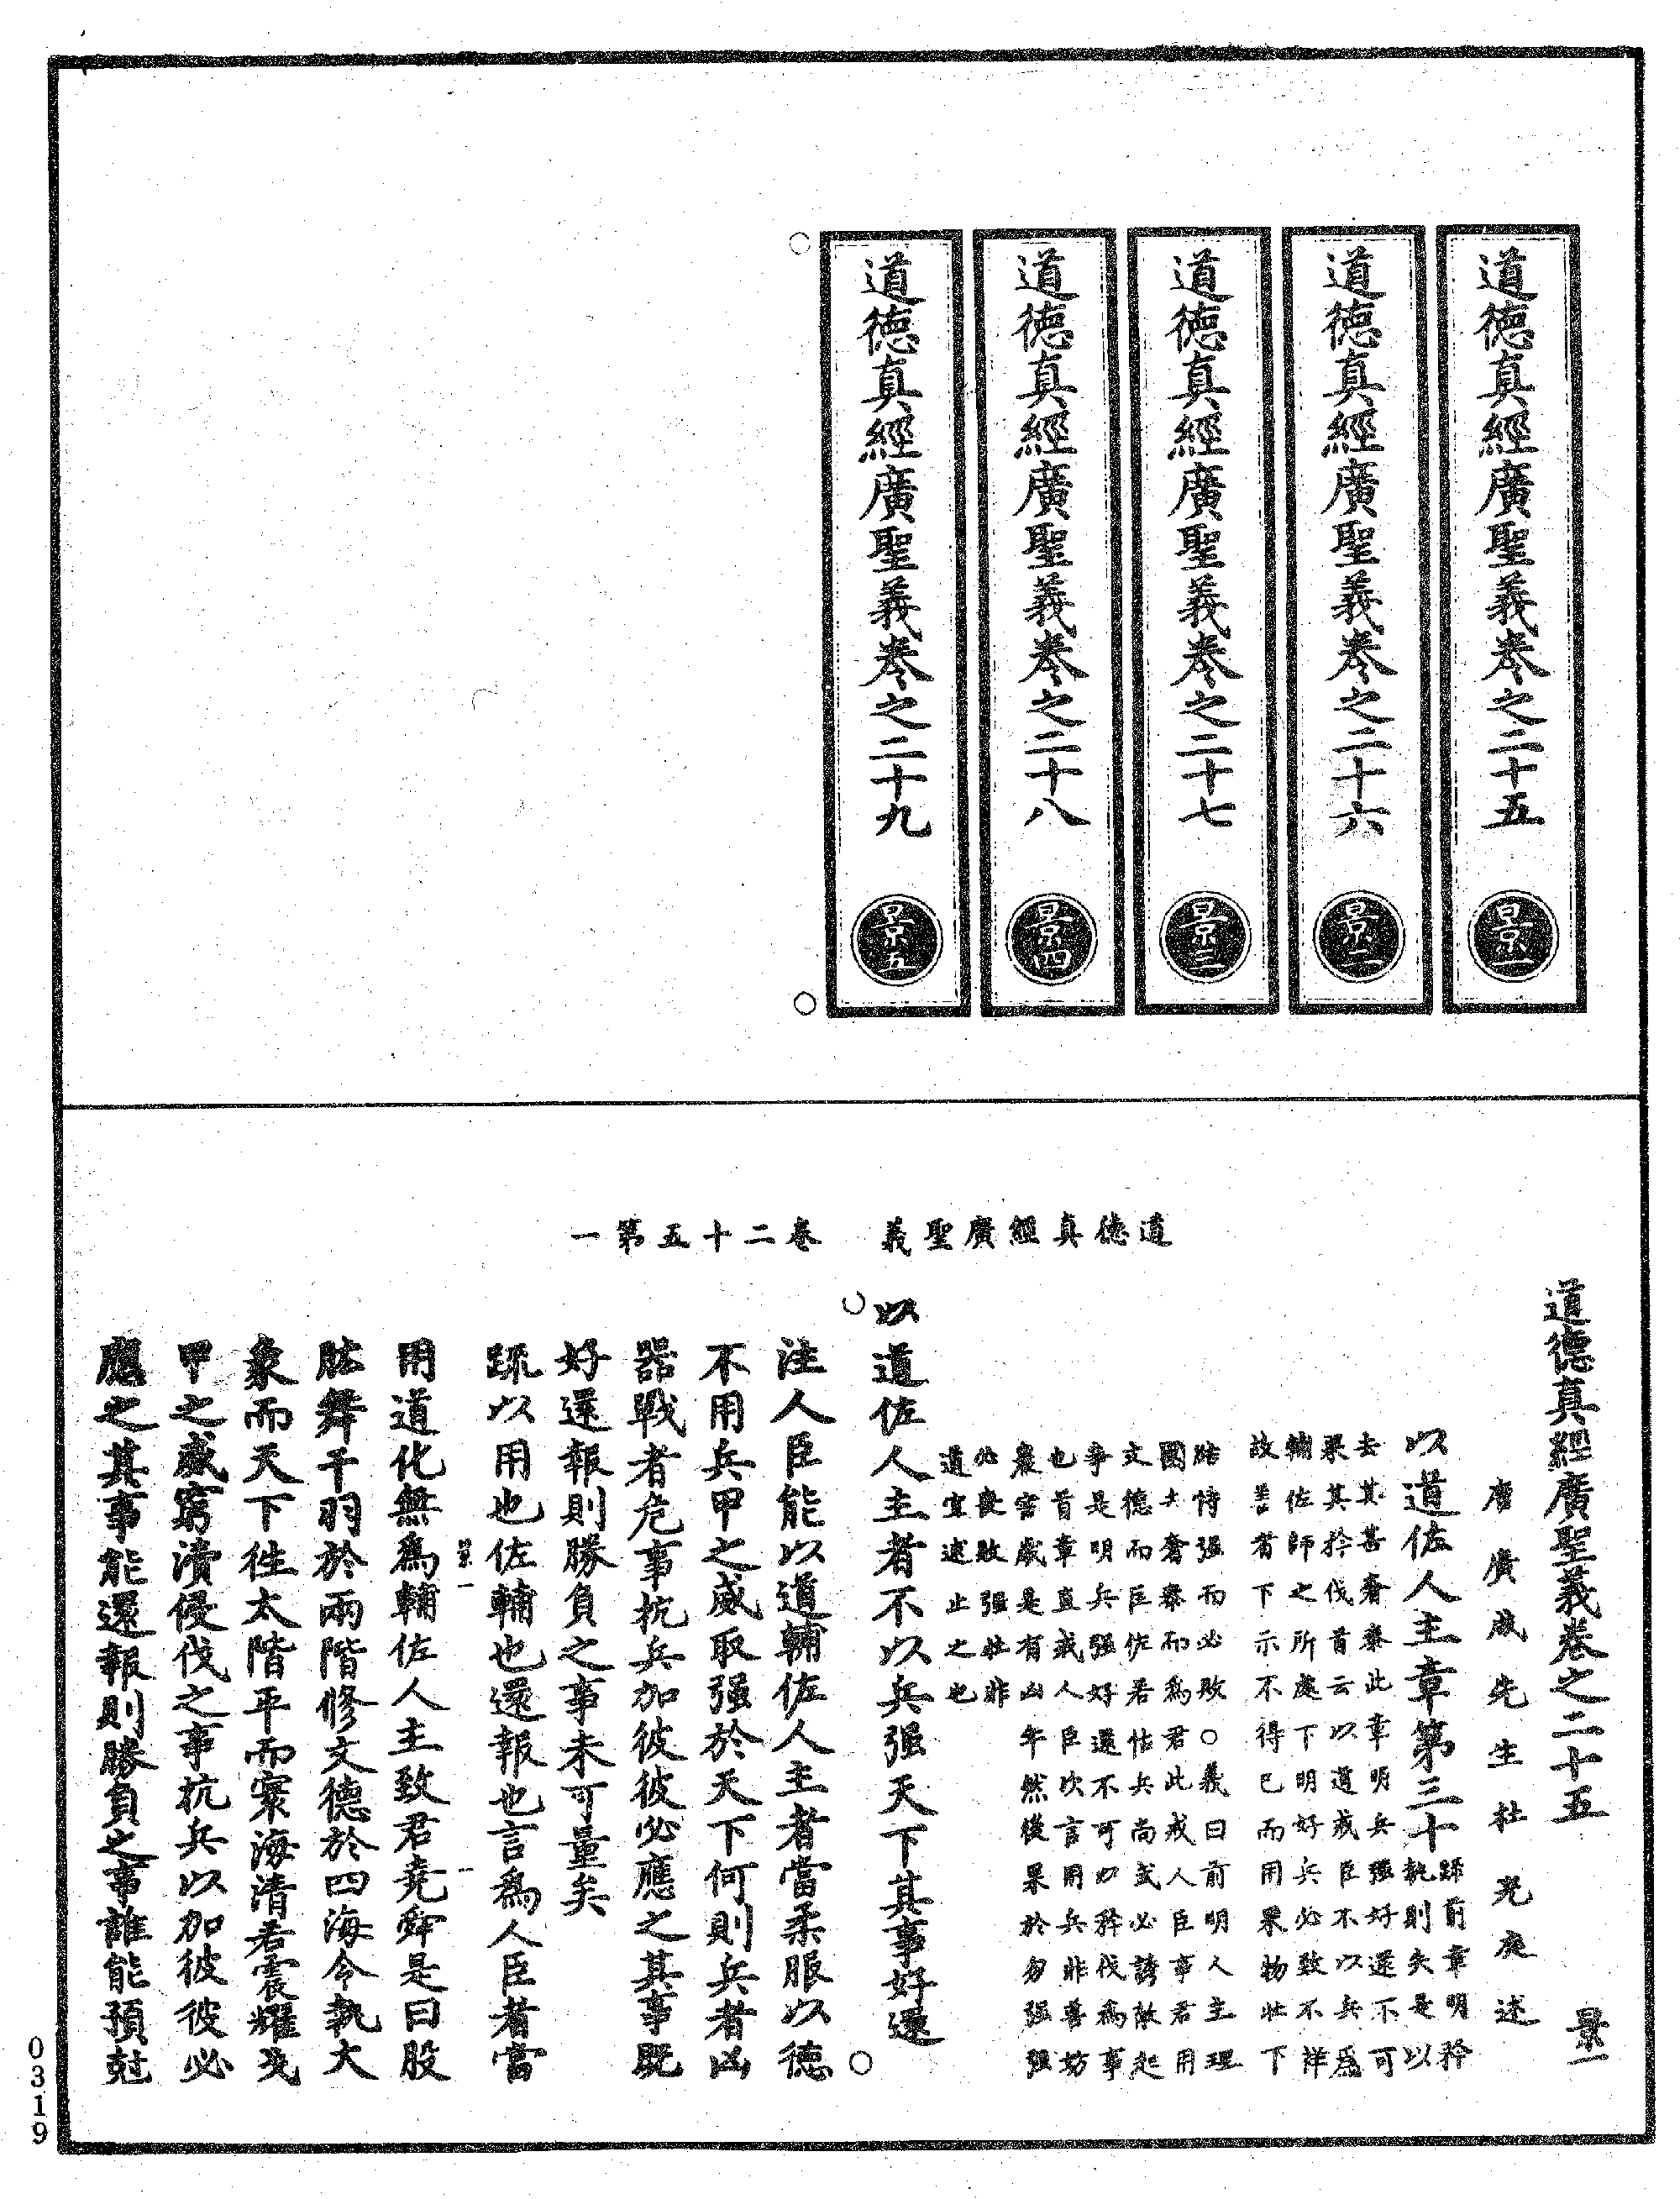 道德真經廣聖義卷之二十五 景一
道德真經廣聖義卷之二十六 景二
道德真經廣聖義卷之二十七 景三
道德真經廣聖義卷之二十八 景四
道德真經廣聖義卷之二十九 景五
道德真經廣聖義 卷二十五第一
道德真經廣聖義卷之二十五 景一
唐廣成先生杜光庭述
以道佐人主章第三十
疏前章明矜
執則失是以
去其甚奢泰此章明兵强好還不可
果其矜伐首云以道戒臣不以兵爲
輔佐師之所處下明好兵必致不祥
故善者下示不得已而用果物壯下
結恃强而必敗○義曰前明人主理
國去奢泰而爲君此戒人臣事君用
文德而臣佐若怙兵尚武必誘敵起
爭是明兵强好還不可以矜伐爲事
也首章直戒人臣次言用兵非善妨
農害歲是有凶年然後果於勿强强
必喪敗强壯非
道宜速止之也
以道佐人主者不以兵强天下其事好還
注人臣能以道輔佐人主者當柔服以德
不用兵甲之威取强於天下何則兵者凶
器戰者危事抗兵加彼彼必應之其事既
好還報則勝負之事未可量矣
疏以用也佐輔也還報也言爲人臣者當
景一 一
用道化無爲輔佐人主致君堯舜是曰股
肱舞干羽於兩階修文德於四海令執大
象而天下徃太階平而寰海清若震耀戎
甲之威窮瀆侵伐之事抗兵以加彼彼必
應之其事能還報則勝負之事誰能預尅
0319